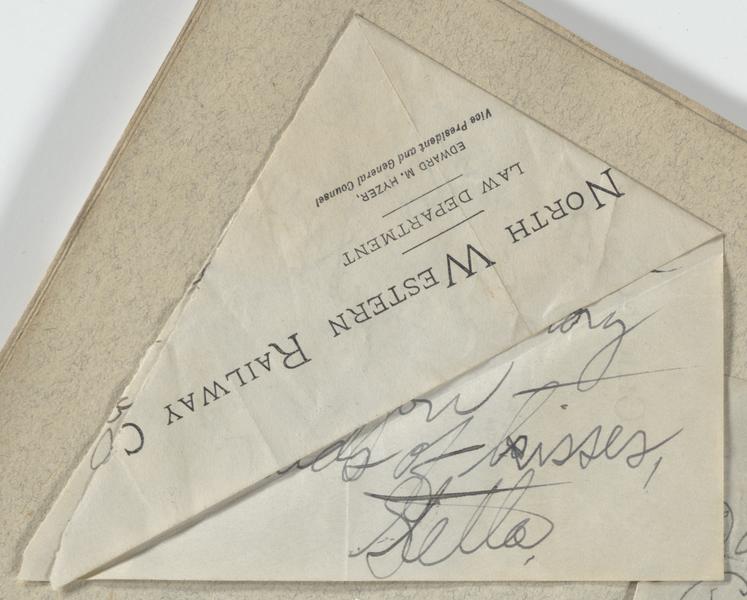 NORTH WESTERN RAILWAY CO
LAW DEPARTMENT
EDWARD M. HYZER,
Vice President and General Counsel
of kisses,
Stella